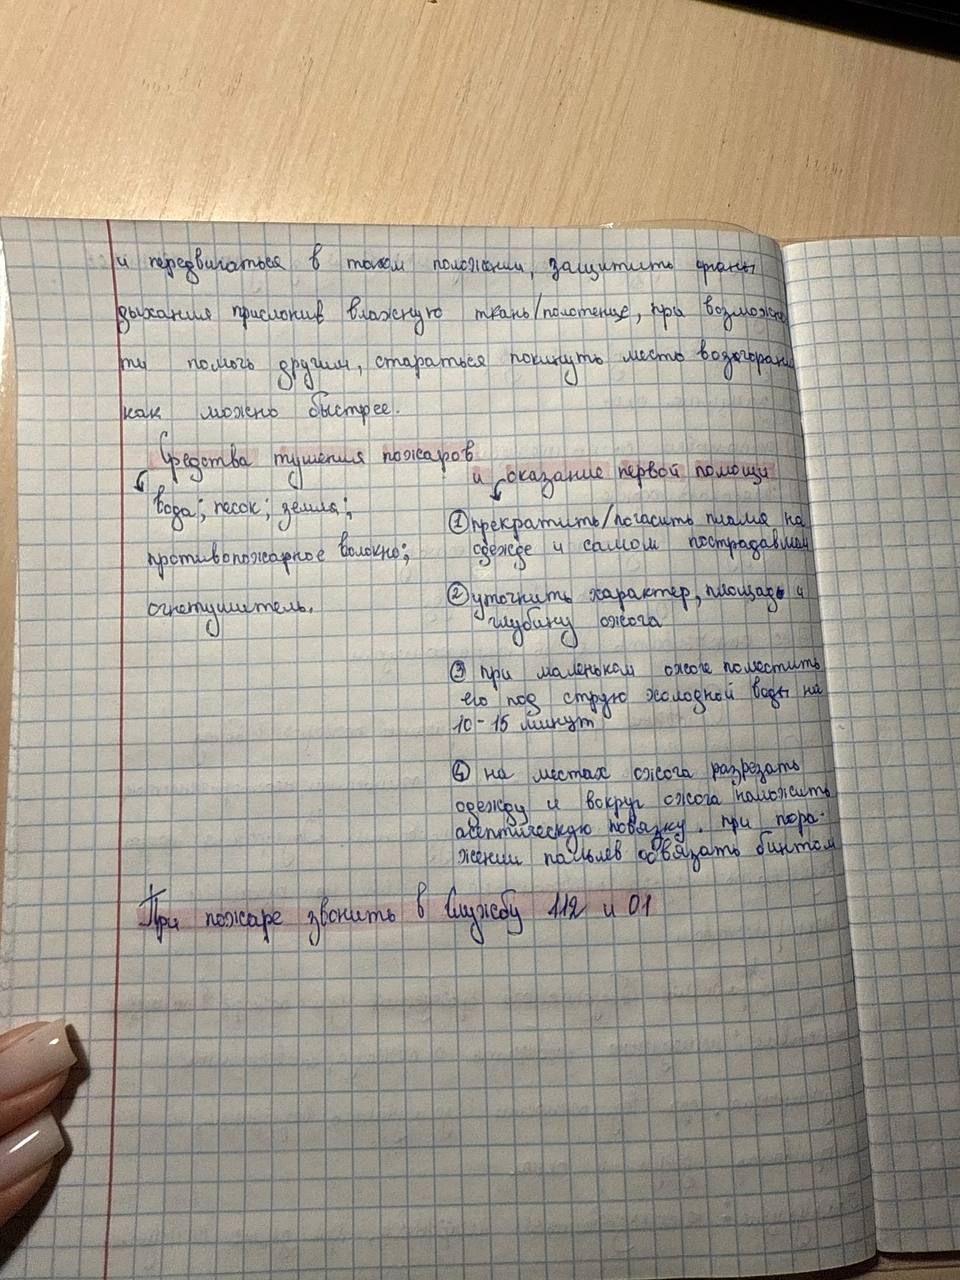 и передвигаться в таком положении, защитить органы
дыхания прислонив влажную ткань/полотенце, при возможнос
ти помочь другим, стараться покинуть место возгорания
как можно быстрее.
Средства тушения пожаров
вода; песок; земля;
противопожарное волокно;
огнетушитель.
и оказание первой помощи
① прекратить/погасить пламя на
одежде и самом пострадавшем
② уточнить характер, площадь и
глубину ожога
③ при маленьком ожоге поместить
его под струю холодной воды на
10-15 минут
④ на местах ожога разрезать
одежду и вокруг ожога наложить
асептическую повязку. при пора-
жении пальцев обвязать бинтом
При пожаре звонить в Службу 112 и 01